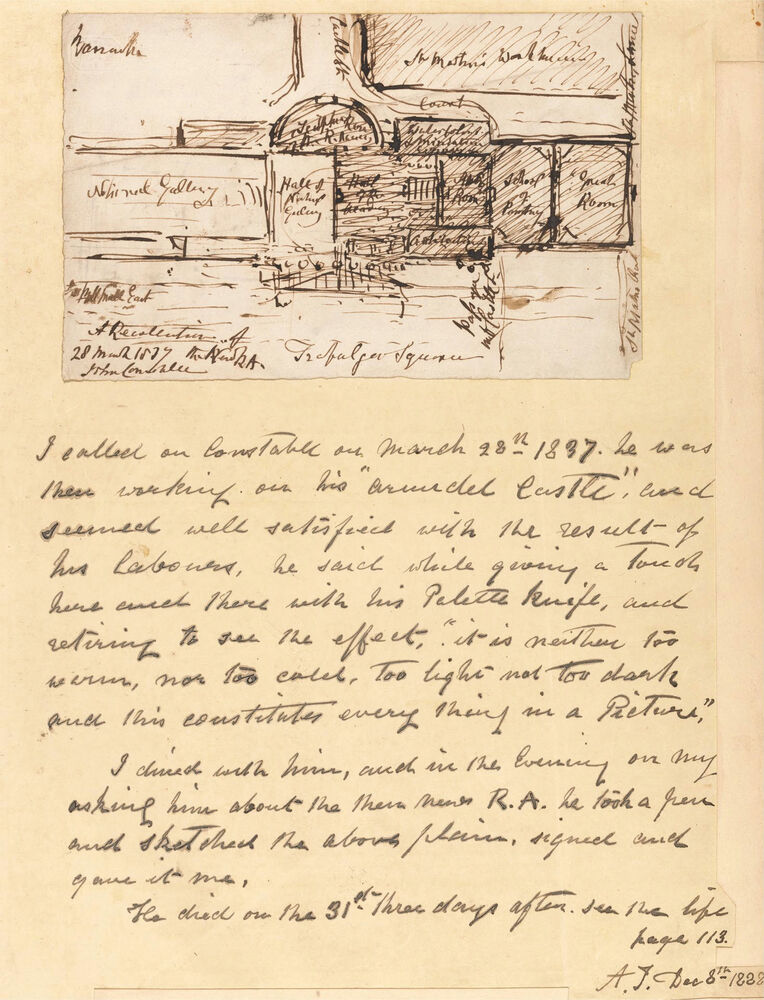 Barracks
Castle St
St Martin's Workhouse
St Martin's Lane
Court
Sculpture Room
National Gallery
Hall of
National
Gallery
Hall
Room
School
of
Painting
Great
Room
Architecture
Pall Mall East
passage
into Castle St
St Martin's Church
A Recollection of
28 March 1837 the New RA.
John Constable
Trafalgar Square
I called on Constable on March 28th 1837. he was
then working on his "Arundel Castle", and
seemed well satisfied with the result of
his labours, he said while giving a touch
here and there with his Palette Knife, and
retiring to see the effect, "it is neither too
warm, nor too cold, too light not too dark
and this constitutes every thing in a Picture,"
I dined with him, and in the Evening on my
asking him about the then new R.A. he took a pen
and sketched the above plain, signed and
gave it me,
He died on the 31st three days after. see the life
page 113.
A.T. Dec 8th 1888